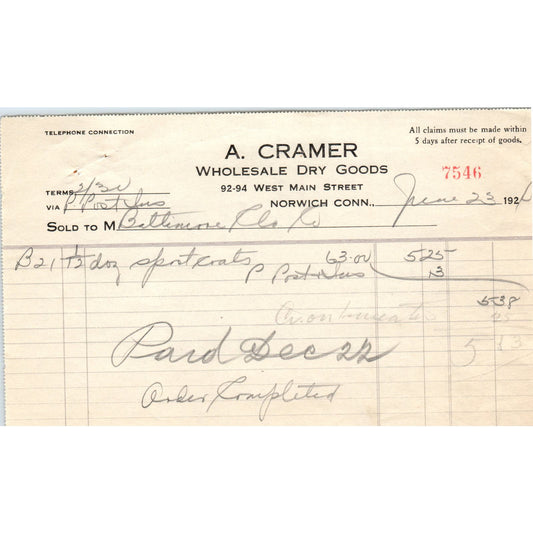 TELEPHONE CONNECTION
All claims must be made within
5 days after receipt of goods.
A. CRAMER
WHOLESALE DRY GOODS
7546
92-94 WEST MAIN STREET
TERMS 2/30
VIA P. Post Ins
NORWICH CONN., June 23 192
SOLD TO M Baltimore Clo Co
B21 1/12 doz sport coats 63.00 5 25
P Post & Ins 13
5 38
25
5 13
Paid Dec 22
Order Completed